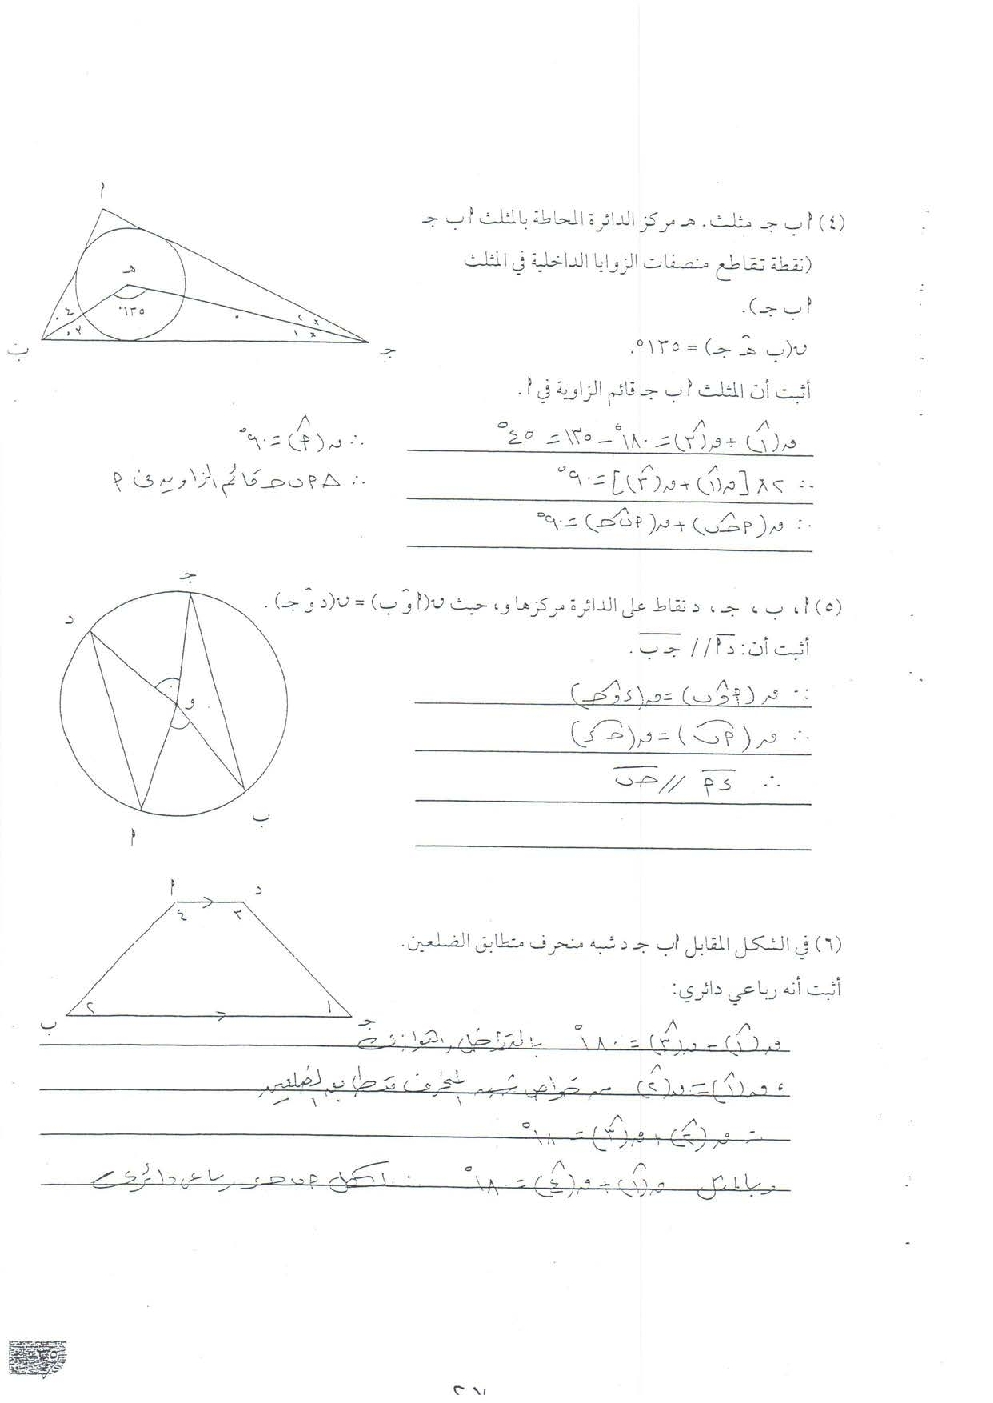 (٤) أ ب جـ مثلث. هـ مركز الدائرة المحاطة بالمثلث أ ب جـ
(نقطة تقاطع منصفات الزوايا الداخلية في المثلث
أ ب جـ).
ن(ب هـ̂ جـ) = ١٣٥°.
أثبت أن المثلث أ ب جـ قائم الزاوية في أ.
أ
هـ
١٣٥°
٤
٣
٢
١
ب
جـ
ن(١̂) + ن(٣̂) = ١٨٠° − ١٣٥ = ٤٥°
∴ ٢ × [ن(١̂) + ن(٣̂)] = ٩٠°
∴ ن(أ جـ̂ ب) + ن(أ ب̂ جـ) = ٩٠°
∴ ن(أ̂) = ٩٠°
∴ △ أ ب جـ قائم الزاوية في أ
(٥) أ، ب، جـ، د نقاط على الدائرة مركزها و، حيث ن(أ و̂ ب) = ن(د و̂ جـ).
أثبت أن: د أ // جـ ب.
جـ
د
و
ب
أ
∵ ن(أ و̂ ب) = ن(د و̂ جـ)
∴ ن(أ ب) = ن(جـ د)
∴ د أ // جـ ب
(٦) في الشكل المقابل أب جـ د شبه منحرف متطابق الضلعين.
أثبت أنه رباعي دائري:
أ
د
٤
٣
٢
١
ب
جـ
ن(١̂) + ن(٣̂) = ١٨٠° بالتداخل والتوازي
، ن(١̂) = ن(٢̂) من خواص شبه المنحرف متطابق الضلعين
∴ ن(٢̂) + ن(٣̂) = ١٨٠°
وبالمثل ن(١̂) + ن(٤̂) = ١٨٠° ∴ الشكل أ ب جـ د رباعي دائري